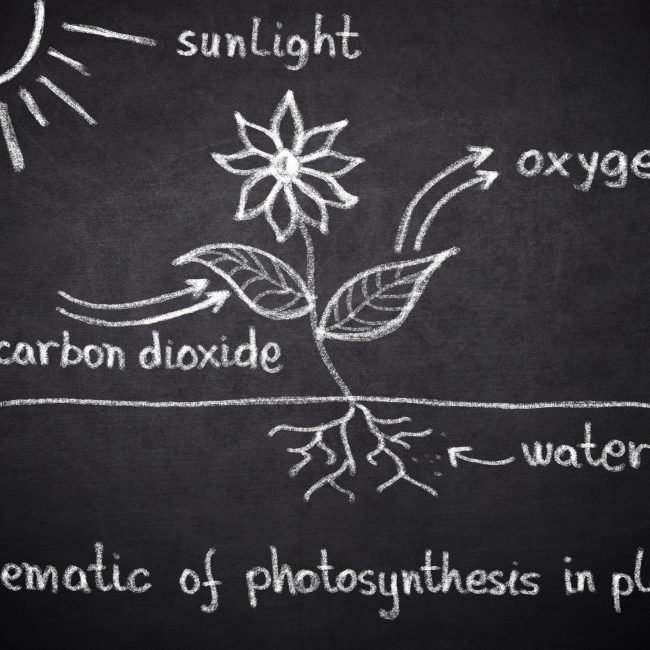 sunlight
oxyge
carbon dioxide
water
ematic of photosynthesis in pl